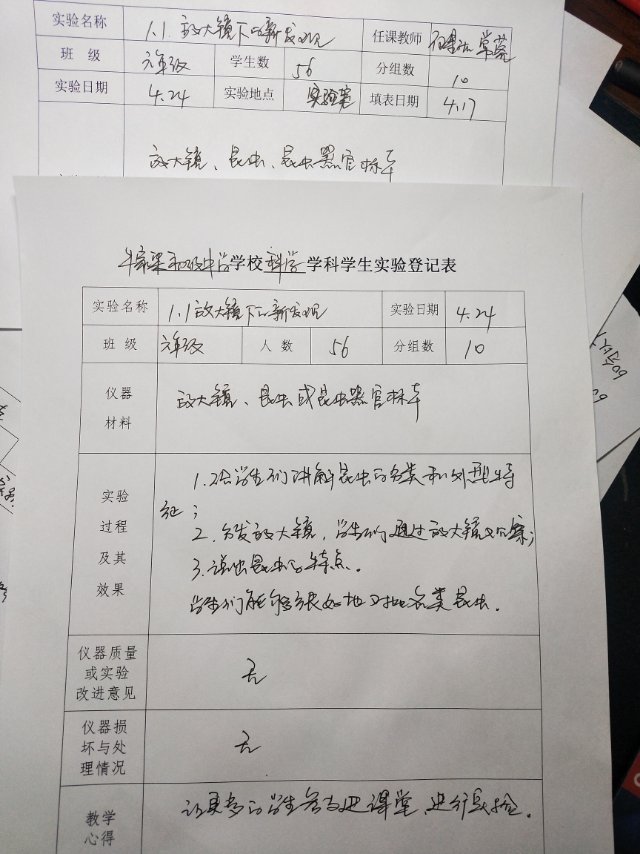 实验名称 1.1 放大镜下的新发现 任课教师
班 级 六年级 学生数 56 分组数 10
实验日期 4.24 实验地点 实验室 填表日期 4.17
放大镜、昆虫、昆虫器官标本
学校科学学科学生实验登记表
实验名称 1.1放大镜下的新发现 实验日期 4.24
班 级 六年级 人 数 56 分组数 10
仪器
材料
放大镜、昆虫或昆虫器官标本
实验
过程
及其
效果
1.给学生们讲解昆虫的分类和外型特
征;
2.分发放大镜,学生们通过放大镜观察;
3.说出昆虫的特点.
学生们能够很好地对比各类昆虫.
仪器质量
或实验
改进意见
无
仪器损
坏与处
理情况
无
教学
心得
让更多的学生参与进课堂,进行实验.